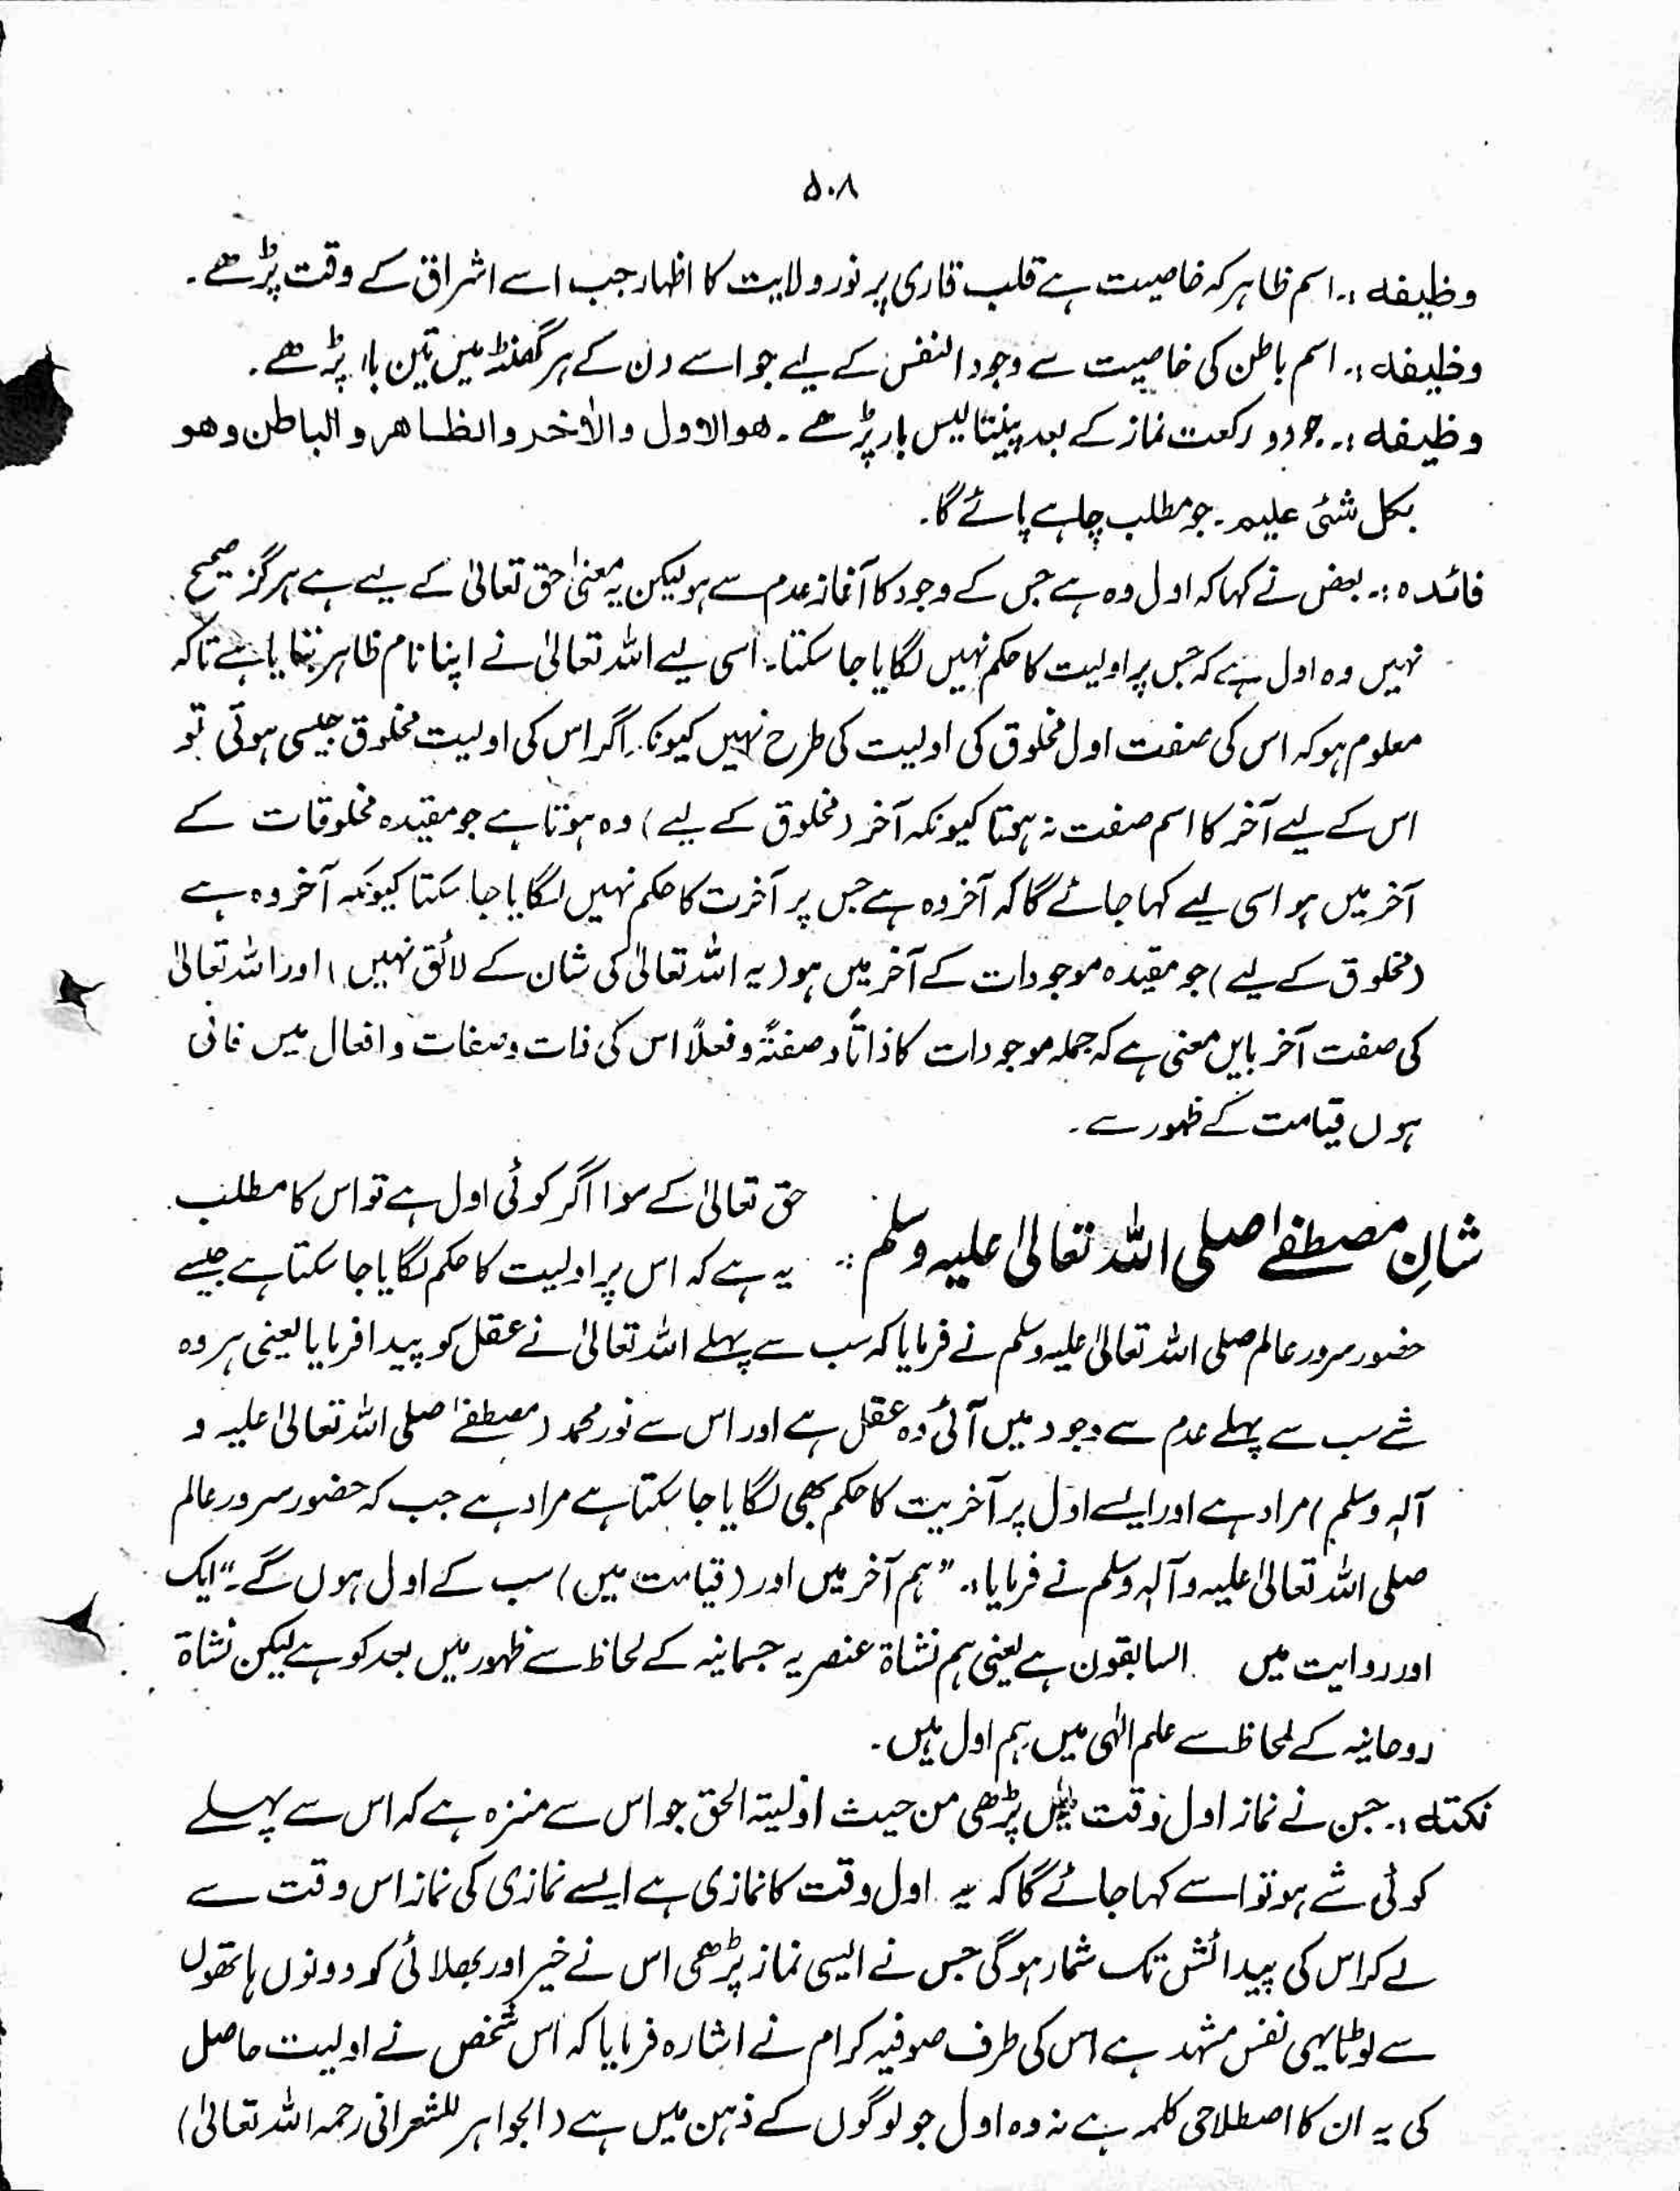 ۵۰۸
وظیفہ :۔ اسم ظاہر کہ خاصیت ہے قلب قاری پر نور ولایت کا اظہار جب اسے اشراق کے وقت پڑھے ۔
وظیفہ :۔ اسم باطن کی خاصیت سے وجود النفس کے لیے جو اسے دن کے ہر گھنٹہ میں تین بار پڑھے ۔
وظیفہ :۔ جو دو رکعت نماز کے بعد پینتالیس بار پڑھے ۔ ھو الاول والاٰخر والظاھر والباطن وھو
بکل شئی علیم ۔ جو مطلب چاہے پائے گا ۔
فائدہ :۔ بعض نے کہا کہ اول وہ ہے جس کے وجود کا آغاز عدم سے ہو لیکن یہ معنیٰ حق تعالیٰ کے لیے ہے ہرگز صحیح
نہیں وہ اول ہے کہ جس پر اولیت کا حکم نہیں لگایا جا سکتا ۔ اسی لیے اللہ تعالیٰ نے اپنا نام ظاہر بتایا ہے تاکہ
معلوم ہو کہ اس کی صفت اول مخلوق کی اولیت کی طرح نہیں کیونکہ اگر اس کی اولیت مخلوق جیسی ہوئی تو
اس کے لیے آخر کا اسم صفت نہ ہوتا کیونکہ آخر (مخلوق کے لیے) وہ ہوتا ہے جو مقیدہ مخلوقات کے
آخر میں ہو اسی لیے کہا جائے گا کہ آخر وہ ہے جس پر آخرت کا حکم نہیں لگایا جا سکتا کیونکہ آخر وہ ہے
(مخلوق کے لیے) جو مقیدہ موجودات کے آخر میں ہو (یہ اللہ تعالیٰ کی شان کے لائق نہیں) اور اللہ تعالیٰ
کی صفت آخر بایں معنی ہے کہ جملہ موجودات کا ذاتاً و صفتۃً و فعلاً اس کی ذات وصفات و افعال میں فانی
ہوں قیامت کے ظہور سے ۔
شانِ مصطفےٰ صلی اللہ تعالیٰ علیہ وسلم :۔ حق تعالیٰ کے سوا اگر کوئی اول ہے تو اس کا مطلب
یہ ہے کہ اس پر اولیت کا حکم لگایا جا سکتا ہے جیسے
حضور سرور عالم صلی اللہ تعالیٰ علیہ وسلم نے فرمایا کہ سب سے پہلے اللہ تعالیٰ نے عقل کو پیدا فرمایا یعنی ہر وہ
شے سب سے پہلے عدم سے وجود میں آئی وہ عقل ہے اور اس سے نور محمد (مصطفےٰ صلی اللہ تعالیٰ علیہ و
آلہ وسلم) مراد ہے اور ایسے اول پر آخریت کا حکم بھی لگایا جا سکتا ہے مراد ہے جب کہ حضور سرور عالم
صلی اللہ تعالیٰ علیہ وآلہ وسلم نے فرمایا :۔ "ہم آخر میں اور (قیامت میں) سب کے اول ہوں گے ۔" ایک
اور روایت میں السابقون ہے یعنی ہم نشاۃ عنصریہ جسمانیہ کے لحاظ سے ظہور میں بعد کو ہے لیکن نشاۃ
روحانیہ کے لحاظ سے علم الٰہی میں ہم اول ہیں ۔
نکتہ :۔ جس نے نماز اول وقت میں پڑھی من حیث اولیتہ الحق جو اس سے منزہ ہے کہ اس سے پہلے
کوئی شے ہو تو اسے کہا جائے گا کہ یہ اول وقت کا نمازی ہے ایسے نمازی کی نماز اس وقت سے
لے کر اس کی پیدائش تک شمار ہو گی جس نے ایسی نماز پڑھی اس نے خیر اور بھلائی کو دونوں ہاتھوں
سے لوٹا یہی نفس مشہد ہے اس کی طرف صوفیہ کرام نے اشارہ فرمایا کہ اس شخص نے اولیت حاصل
کی یہ ان کا اصطلاحی کلمہ ہے نہ وہ اول جو لوگوں کے ذہن میں ہے (الجواہر للشعرانی رحمہ اللہ تعالیٰ)